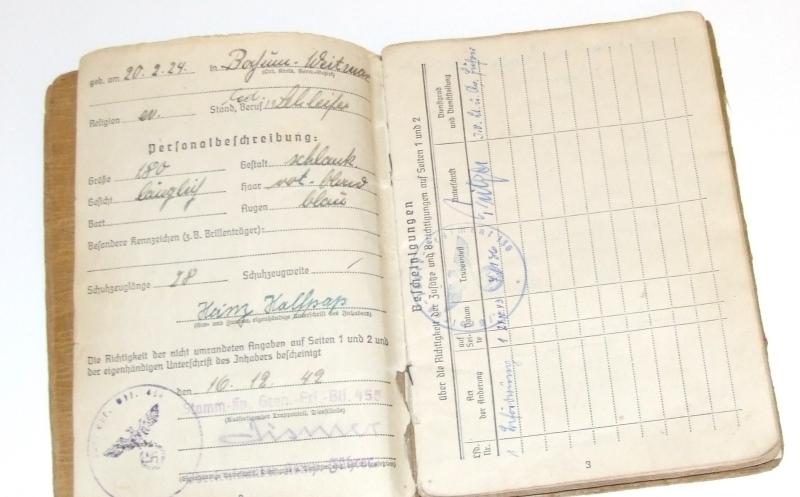 geb. am 20. 2. 24. in Bochum-Weitmar
(Ort, Kreis, Verw.-Bezirk)
Religion ev. Stand, Beruf led. Schleifer
Personalbeschreibung:
Größe 180 Gestalt schlank
Gesicht länglich Haar rot-blond
Bart Augen blau
Besondere Kennzeichen (z. B. Brillenträger):
Schuhzeuglänge 28 Schuhzeugweite /
(Vor- und Zuname, eigenhändige Unterschrift des Inhabers)
Heinz
Die Richtigkeit der nicht umrandeten Angaben auf Seiten 1 und 2 und
der eigenhändigen Unterschrift des Inhabers bescheinigt
den 16. 12. 42
Stamm-Kp. Gren.-Ers.-Btl. 456
Bescheinigungen
über die Richtigkeit der Zusätze und Berichtigungen auf Seiten 1 und 2
Lfd. Nr.
Art der Änderung
auf Seite
Datum
Truppenteil
Unterschrift
Dienstgrad und Dienststellung
1 Beförderung 1
3